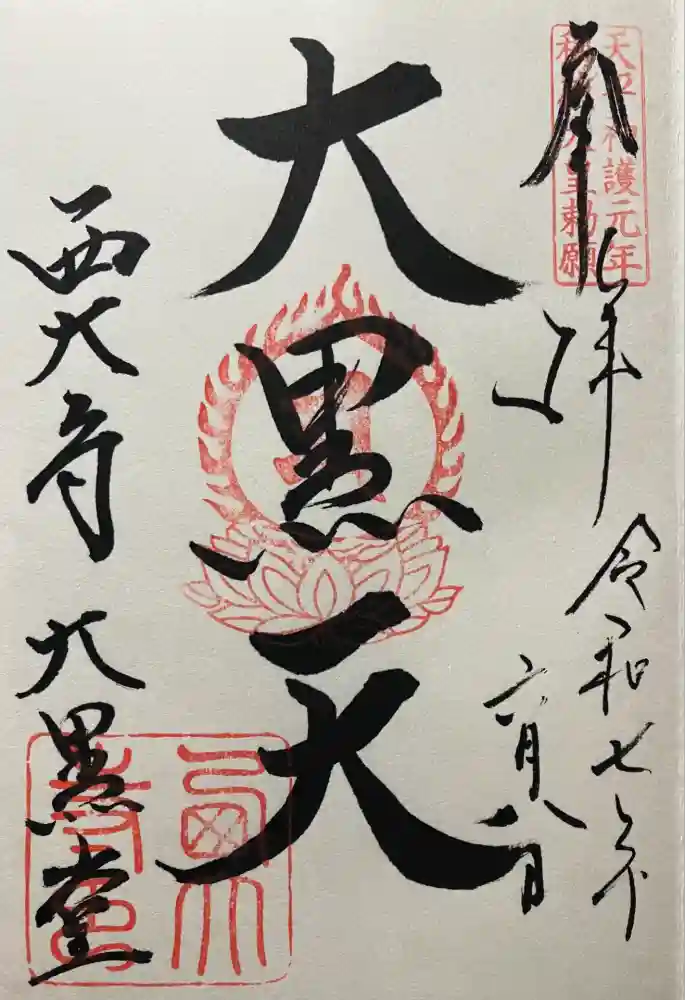 天平神護元年
称徳天皇勅願
奉拝
令和七年
六月八日
大黒天
西大寺 大黒堂